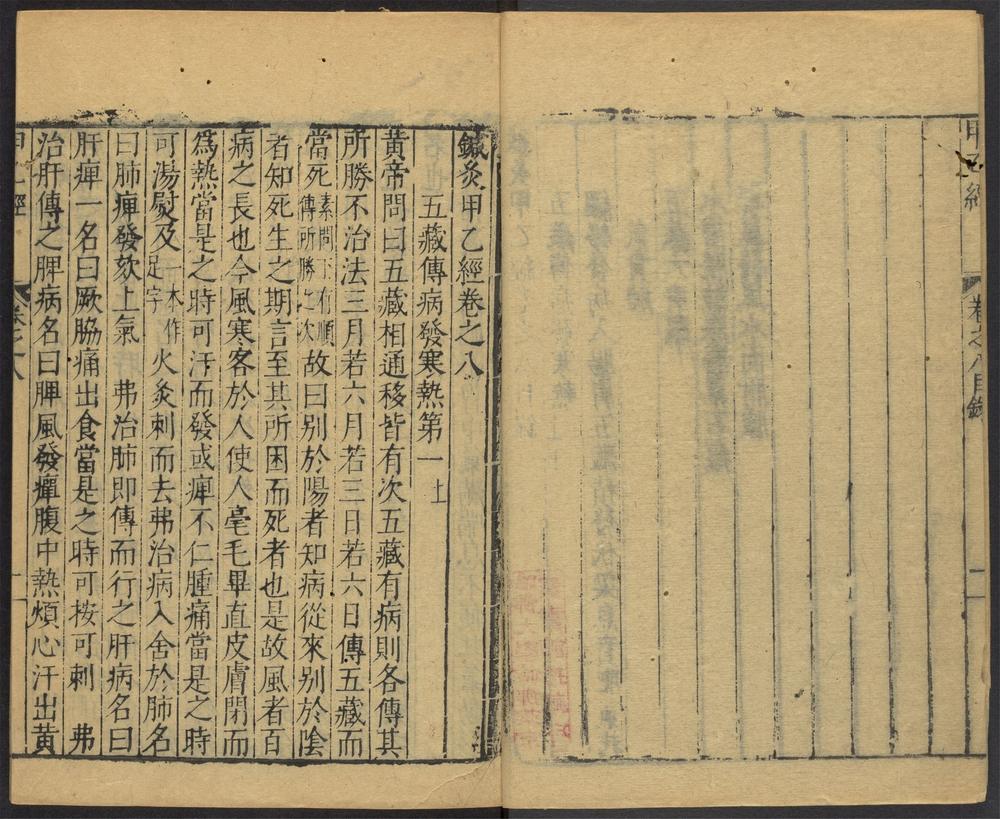 甲乙經 卷之八目錄 二
鍼灸甲乙經卷之八
五藏傳病發寒熱第一上
黃帝問曰五藏相通移皆有次五藏有病則各傳其
所勝不治法三月若六月若三日若六日傳五藏而
當死素問下有順傳所勝之次故曰别於陽者知病從來别於陰
者知死生之期言至其所困而死者也是故風者百
病之長也今風寒客於人使人毫毛畢直皮膚閉而
爲熱當是之時可汗而發或痺不仁腫痛當是之時
可湯熨及一本作足字火灸刺而去弗治病入舍於肺名
曰肺痺發欬上氣 弗治肺即傳而行之肝病名曰
肝痺一名曰厥脇痛出食當是之時可按可刺 弗
治肝傳之脾病名曰脾風發癉腹中熱煩心汗出黃
甲乙經 卷之八 一